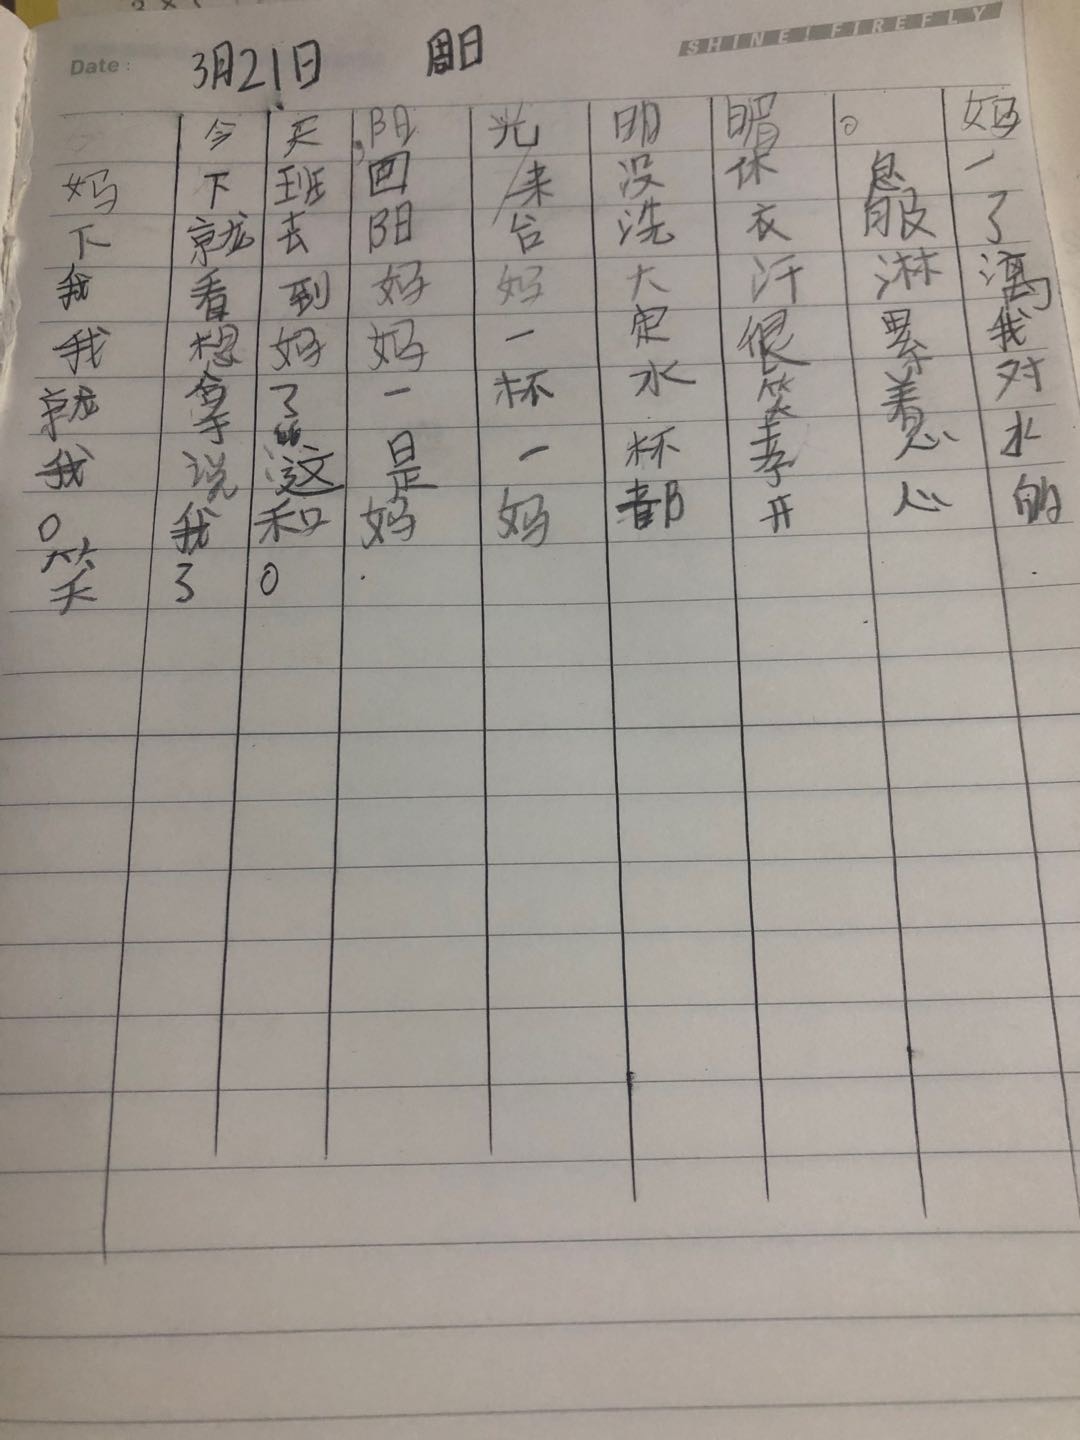 SHINE! FIREFLY
Date: 3月21日 周日
今天,阳光明媚。妈
妈下班回来没休息一
下就去阳台洗衣服了
我看到妈妈大汗淋漓
我想妈妈一定很累我
就拿了一杯水笑着对
我说这是一杯孝心水
。我和妈妈都开心的
笑了。